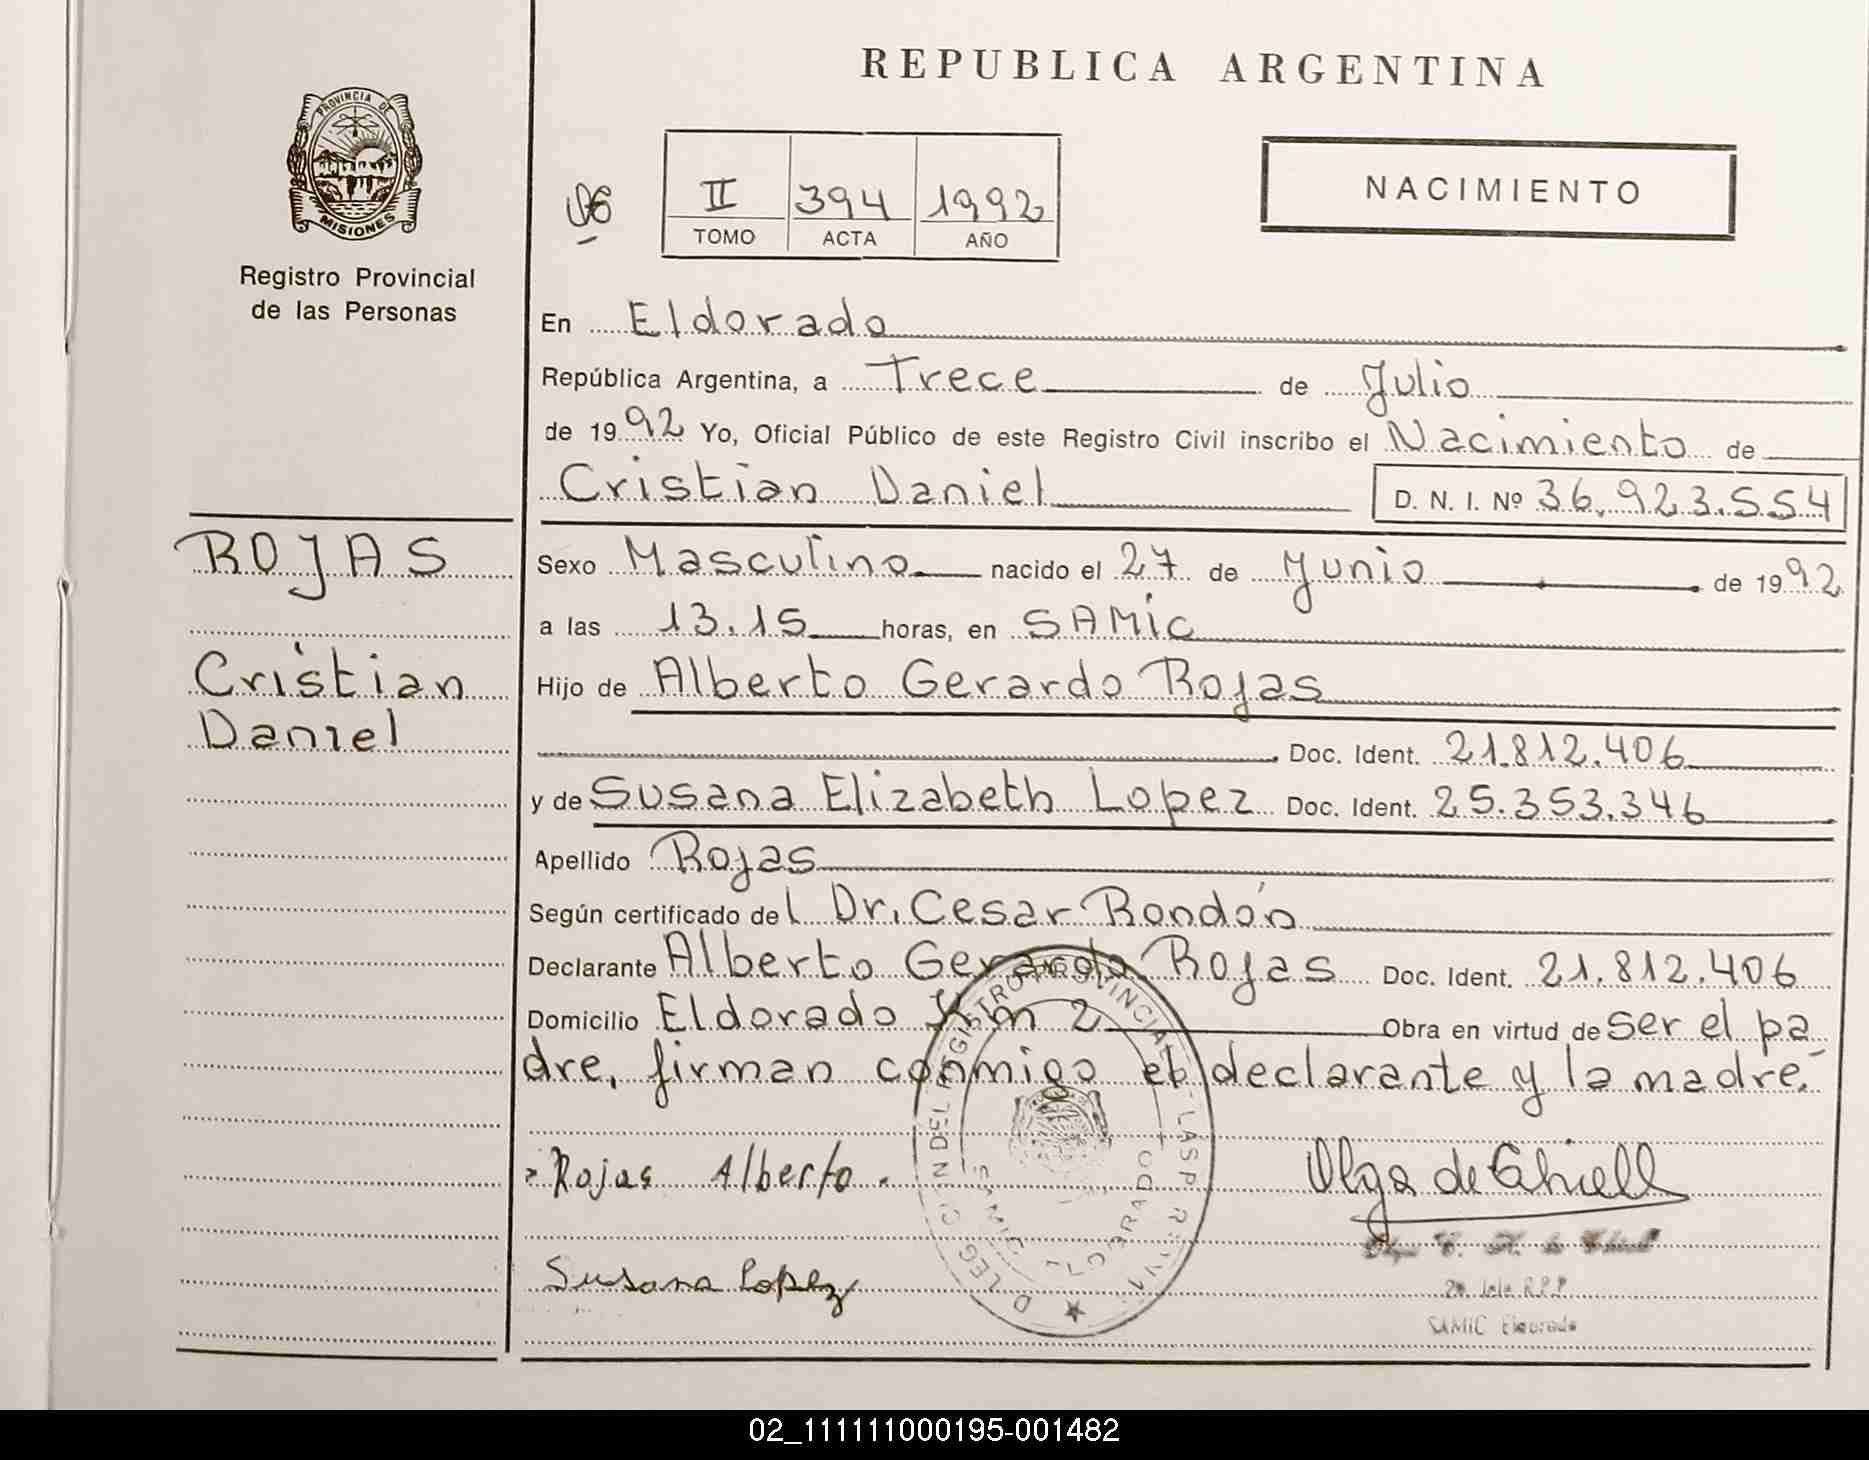 REPUBLICA ARGENTINA
PROVINCIA DE
MISIONES
Registro Provincial
de las Personas
II 394 1992
TOMO ACTA AÑO
NACIMIENTO
En Eldorado
República Argentina, a Trece de Julio
de 1992 Yo, Oficial Público de este Registro Civil inscribo el Nacimiento de
Cristian Daniel D. N. I. Nº 36.923.554
ROJAS
Cristian
Daniel
Sexo Masculino nacido el 27 de Junio de 1992
a las 13.15 horas, en SAMic
Hijo de Alberto Gerardo Rojas
Doc. Ident. 21.812.406
y de Susana Elizabeth Lopez Doc. Ident. 25.353.346
Apellido Rojas
Según certificado del Dr. Cesar Rondón
Declarante Alberto Gerardo Rojas Doc. Ident. 21.812.406
Domicilio Eldorado Km 2 Obra en virtud de ser el pa-
dre, firman conmigo el declarante y la madre.
Rojas Alberto.
Olga de Chiell
Susana Lopez
SAMIC Eldorado
02_111111000195-001482